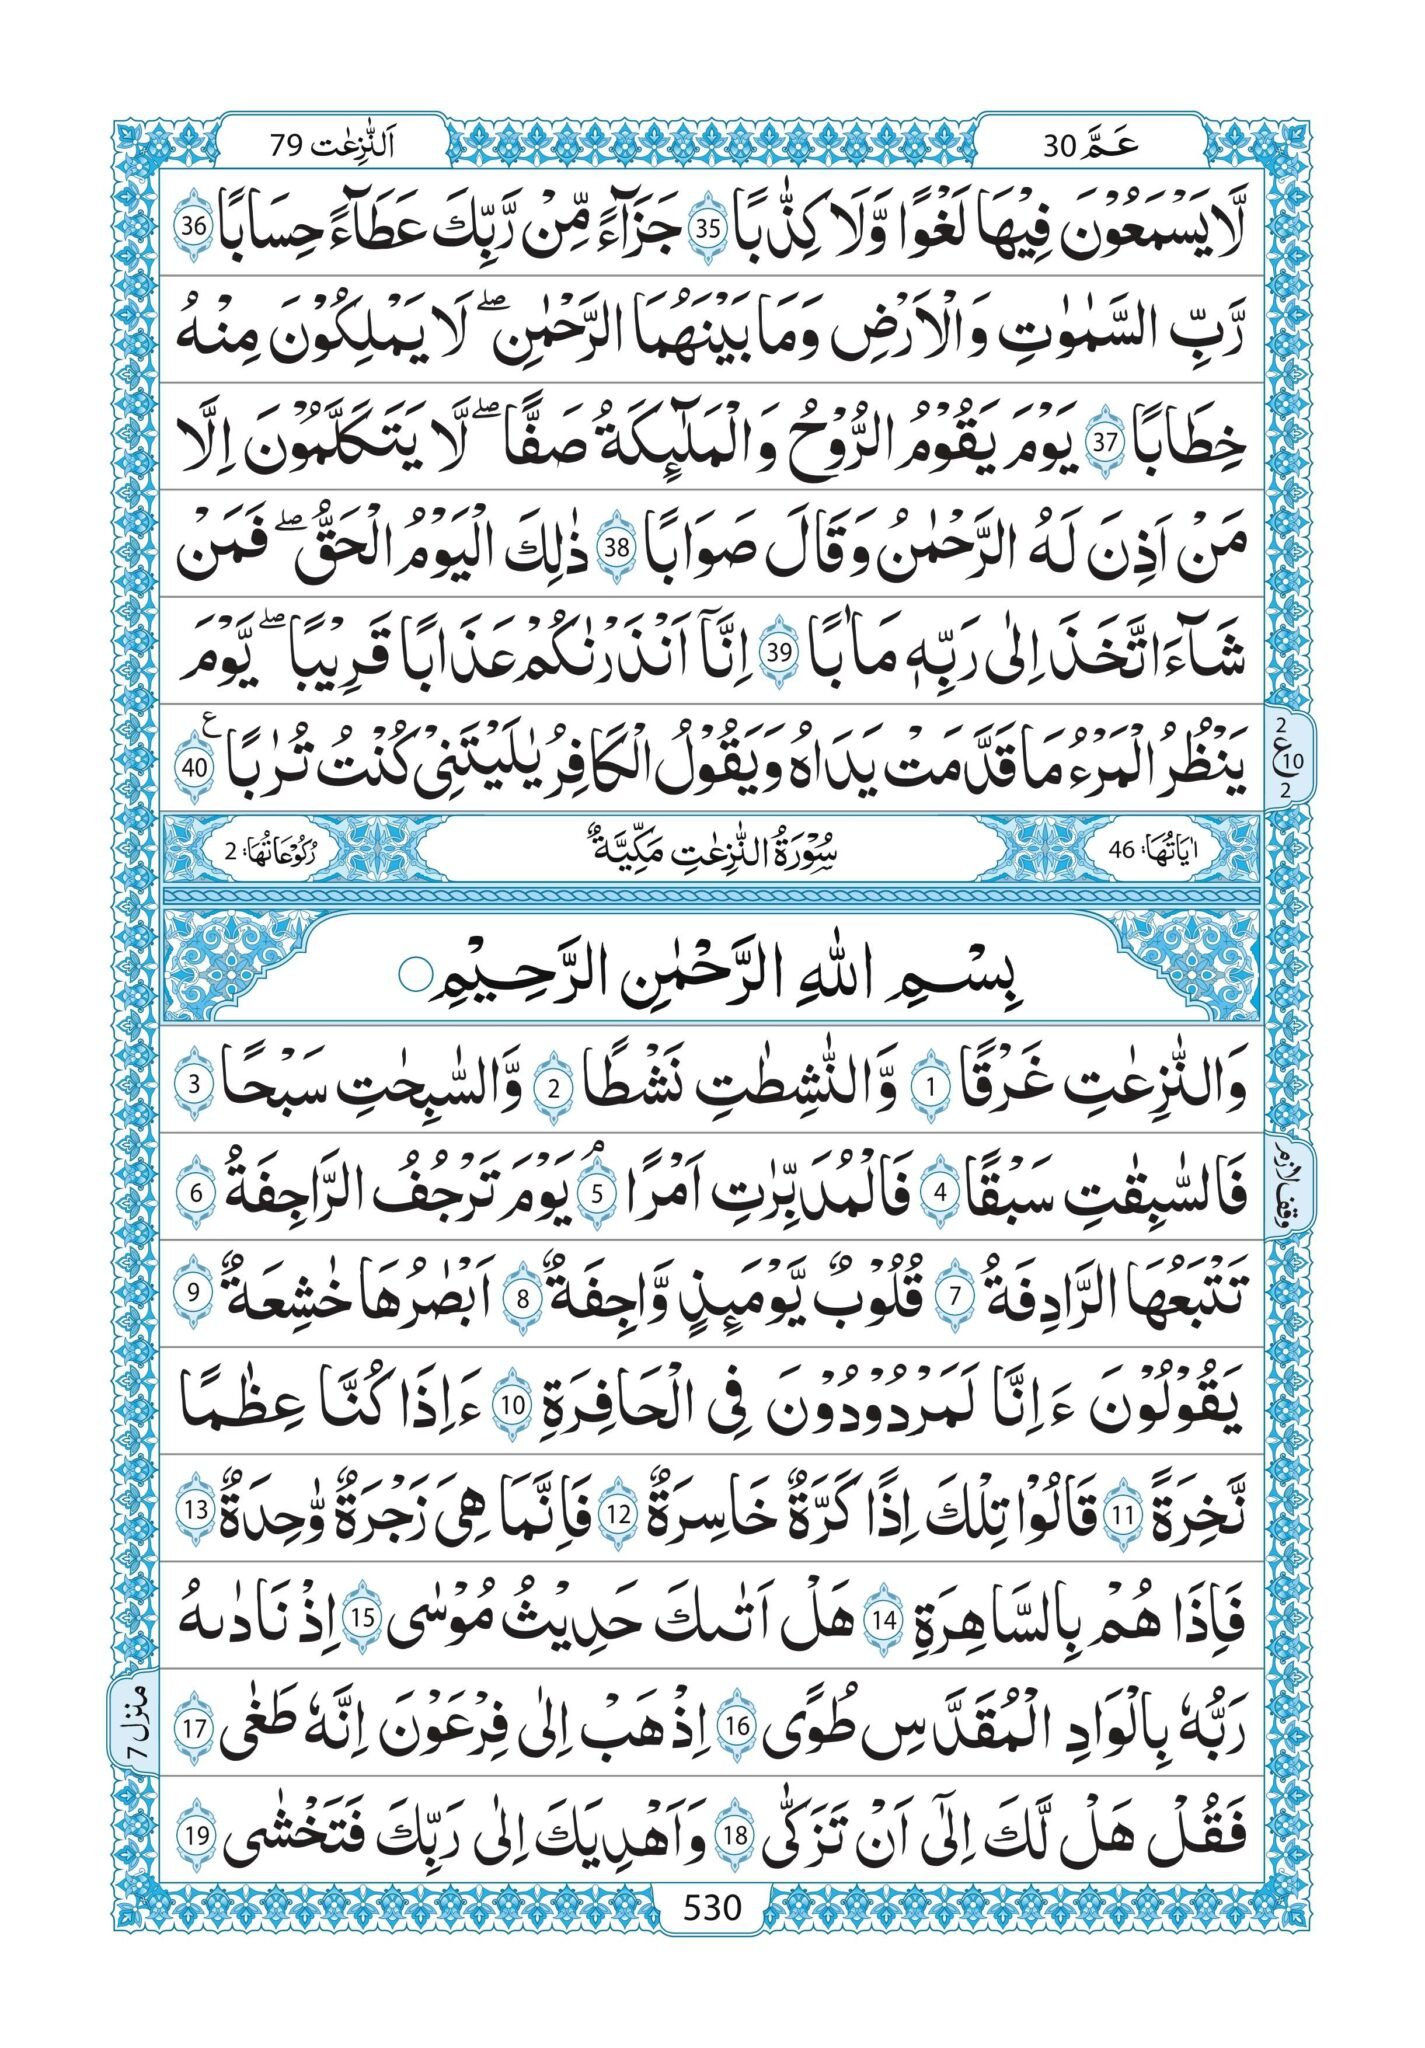 عَمَّ 30
اَلنّٰزِعٰت 79
لَّا يَسْمَعُوْنَ فِيْهَا لَغْوًا وَّلَا كِذّٰبًا 35 جَزَآءً مِّنْ رَّبِّكَ عَطَآءً حِسَابًا 36
رَّبِّ السَّمٰوٰتِ وَالْاَرْضِ وَمَا بَيْنَهُمَا الرَّحْمٰنِ ۖ لَا يَمْلِكُوْنَ مِنْهُ
خِطَابًا 37 يَوْمَ يَقُوْمُ الرُّوْحُ وَالْمَلٰٓئِكَةُ صَفًّا ۖ لَّا يَتَكَلَّمُوْنَ اِلَّا
مَنْ اَذِنَ لَهُ الرَّحْمٰنُ وَقَالَ صَوَابًا 38 ذٰلِكَ الْيَوْمُ الْحَقُّ ۖ فَمَنْ
شَآءَ اتَّخَذَ اِلٰى رَبِّهٖ مَاٰبًا 39 اِنَّآ اَنْذَرْنٰكُمْ عَذَابًا قَرِيْبًا ۖ يَّوْمَ
يَنْظُرُ الْمَرْءُ مَا قَدَّمَتْ يَدَاهُ وَيَقُوْلُ الْكَافِرُ يٰلَيْتَنِيْ كُنْتُ تُرٰبًا ع 40
2 ع 10 2
اٰيَاتُهَا: 46
سُوْرَةُ النّٰزِعٰتِ مَكِّيَّةٌ
رُكُوْعَاتُهَا: 2
بِسْمِ اللهِ الرَّحْمٰنِ الرَّحِيْمِ
وَالنّٰزِعٰتِ غَرْقًا 1 وَّالنّٰشِطٰتِ نَشْطًا 2 وَّالسّٰبِحٰتِ سَبْحًا 3
فَالسّٰبِقٰتِ سَبْقًا 4 فَالْمُدَبِّرٰتِ اَمْرًا ۘ 5 يَوْمَ تَرْجُفُ الرَّاجِفَةُ 6
وقف لازم
تَتْبَعُهَا الرَّادِفَةُ 7 قُلُوْبٌ يَّوْمَئِذٍ وَّاجِفَةٌ 8 اَبْصٰرُهَا خٰشِعَةٌ 9
يَقُوْلُوْنَ ءَاِنَّا لَمَرْدُوْدُوْنَ فِى الْحَافِرَةِ 10 ءَاِذَا كُنَّا عِظٰمًا
نَّخِرَةً 11 قَالُوْا تِلْكَ اِذًا كَرَّةٌ خَاسِرَةٌ 12 فَاِنَّمَا هِىَ زَجْرَةٌ وّٰحِدَةٌ 13
فَاِذَا هُمْ بِالسَّاهِرَةِ 14 هَلْ اَتٰىكَ حَدِيْثُ مُوْسٰى 15 اِذْ نَادٰىهُ
رَبُّهٗ بِالْوَادِ الْمُقَدَّسِ طُوًى 16 اِذْهَبْ اِلٰى فِرْعَوْنَ اِنَّهٗ طَغٰى 17
منزل 7
فَقُلْ هَلْ لَّكَ اِلٰٓى اَنْ تَزَكّٰى 18 وَاَهْدِيَكَ اِلٰى رَبِّكَ فَتَخْشٰى 19
530